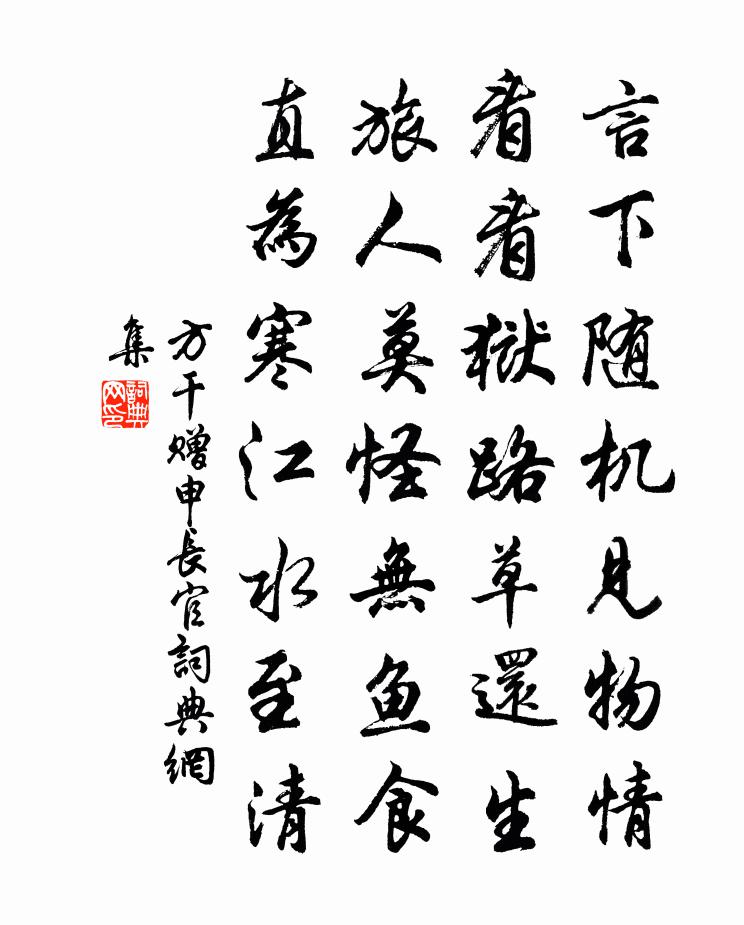 言下随机见物情
看看獄路草還生
旅人莫怪無鱼食
直為寒江水至清
方干赠申長官詞典網
集
詞典
网印